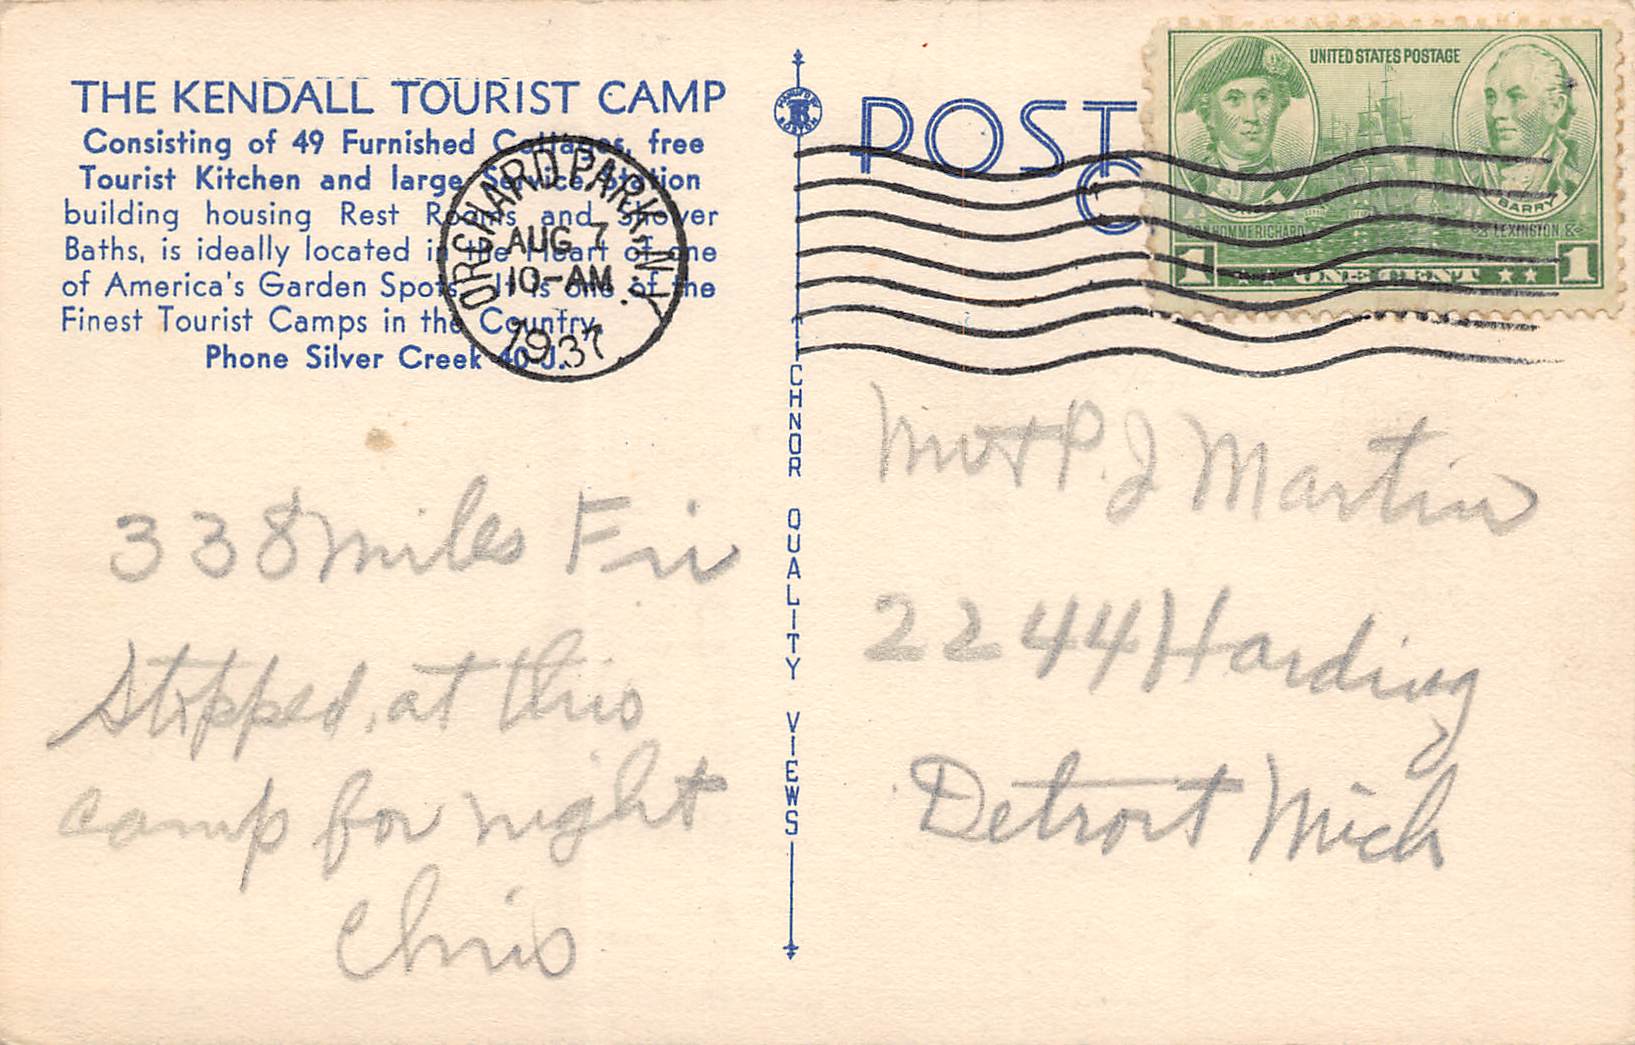 THE KENDALL TOURIST CAMP
Consisting of 49 Furnished Cottages, free
Tourist Kitchen and large Service Station
building housing Rest Rooms and Shower
Baths, is ideally located in the Heart of one
of America's Garden Spots. It is one of the
Finest Tourist Camps in the Country.
Phone Silver Creek 40-J.
ORCHARD PARK N.Y.
AUG 7
10-AM
1937
338 miles Fri
Stopped at this
camp for night
Chris
TICHNOR QUALITY VIEWS
BOSTON
POST
C
UNITED STATES POSTAGE
BARRY
BON HOMME RICHARD
LEXINGTON
1 ONE CENT 1
P. J Martin
2244 Harding
Detroit Mich